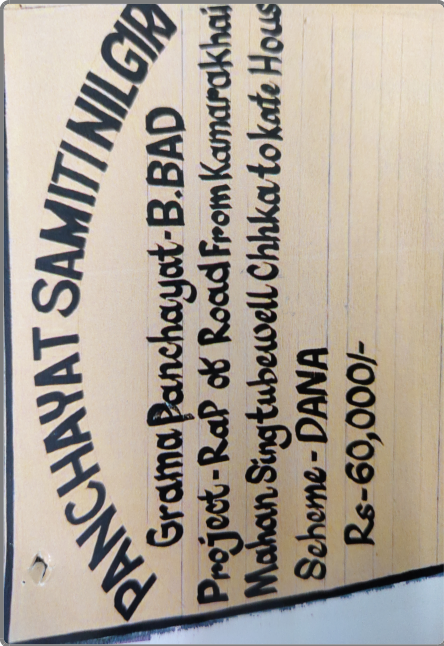 PANCHAYAT SAMITI NILGIRI
Grama Panchayat-B.BAD
Project-RaP of Road From Kamarakhai
Mahan Sing tubewell Chhka to kate Hous
Scheme-DANA
Rs-60,000/-